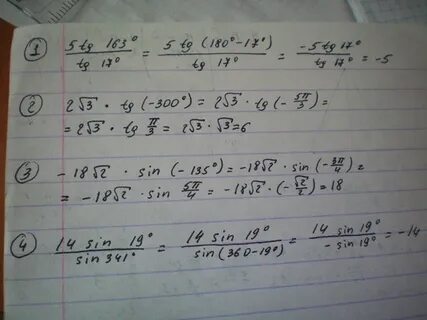 ① 5 tg 163° / tg 17° = 5 tg (180° - 17°) / tg 17° = -5 tg 17° / tg 17° = -5
② 2√3 · tg (-300°) = 2√3 · tg (- 5π/3) =
= 2√3 · tg π/3 = 2√3 · √3 = 6
③ -18√2 · sin (-135°) = -18√2 · sin (- 3π/4) =
= -18√2 · sin 5π/4 = -18√2 · (- √2/2) = 18
④ 14 sin 19° / sin 341° = 14 sin 19° / sin (360 - 19°) = 14 sin 19° / - sin 19° = -14